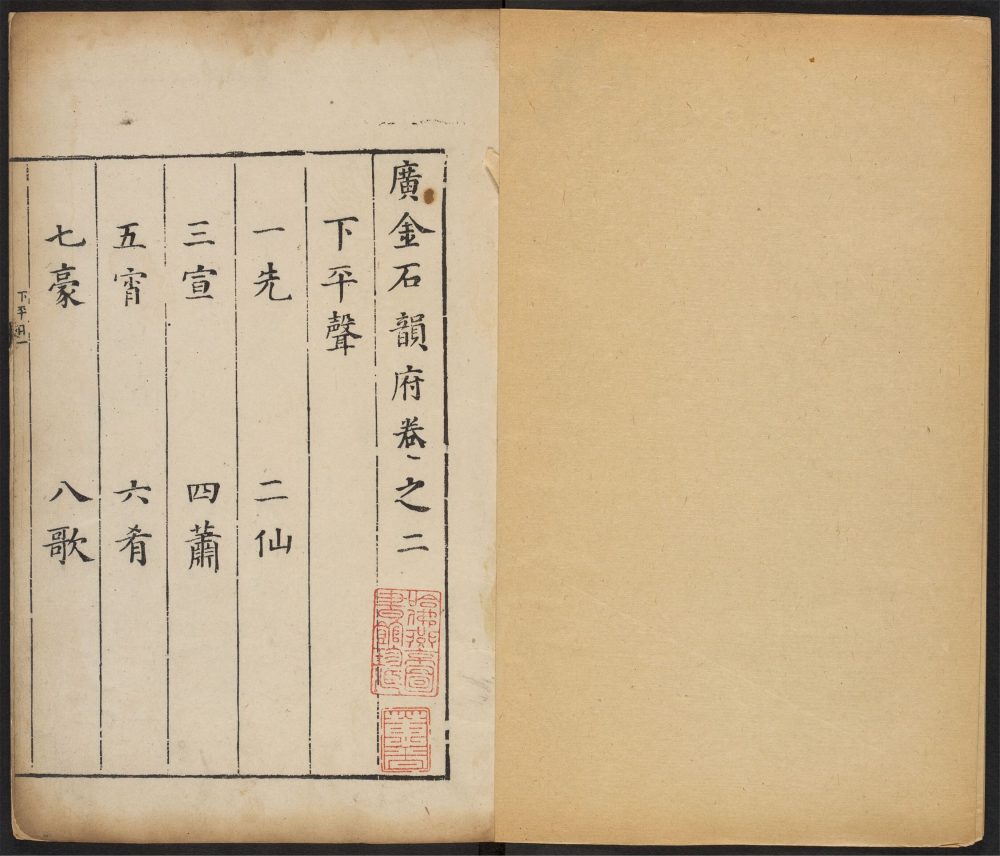 廣金石韻府卷之二
下平聲
一先 二仙
三宣 四蕭
五宵 六肴
七豪 八歌
下平目一
哈佛燕京圖書館珍藏